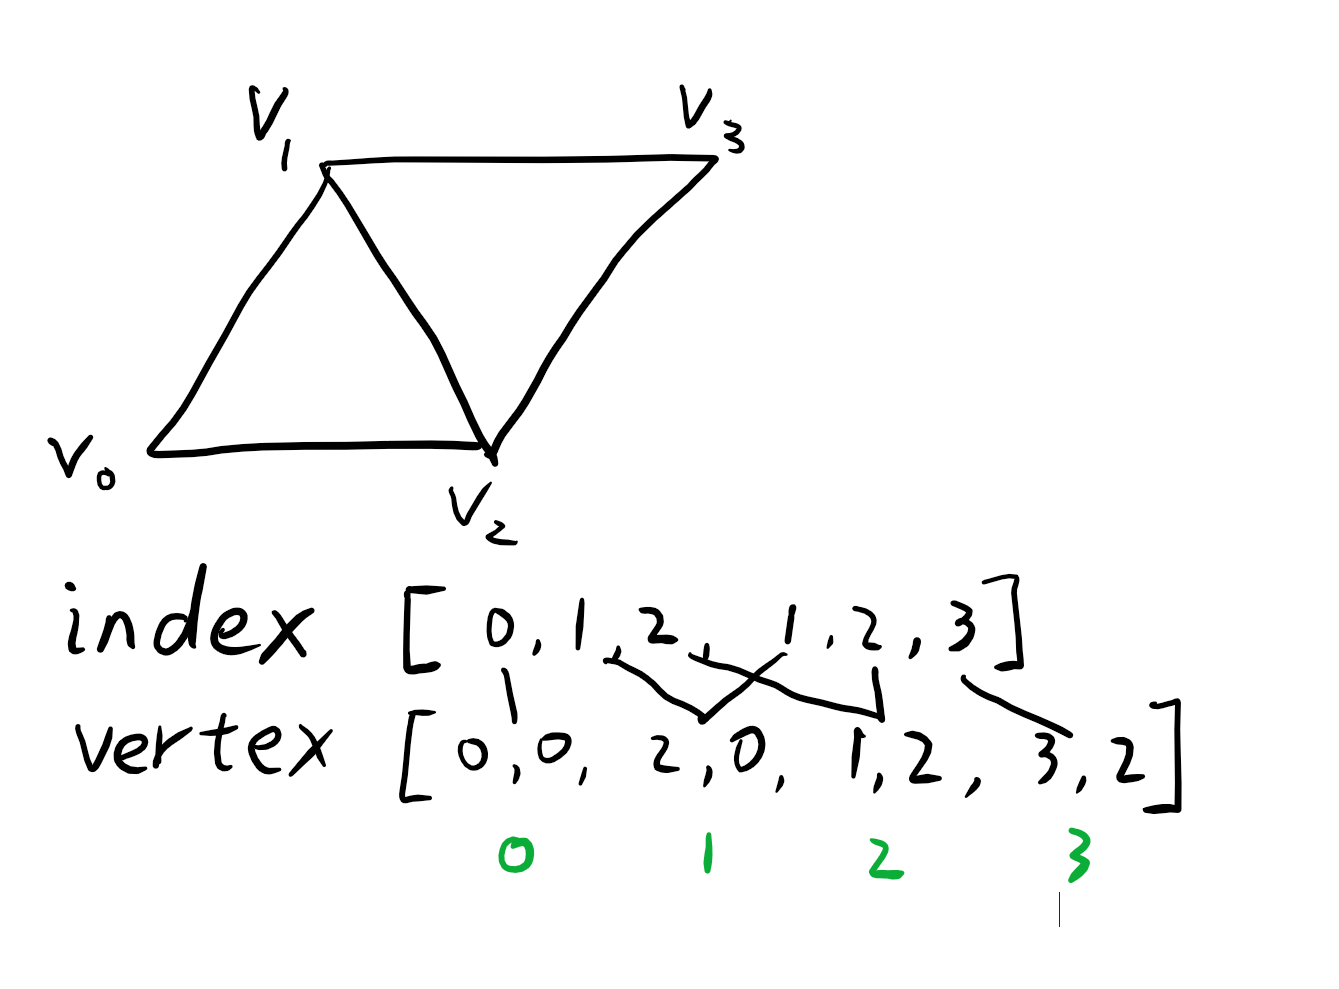 V1
V3
V0
V2
index [0,1,2,1,2,3]
vertex [0,0,2,0,1,2,3,2]
0 1 2 3